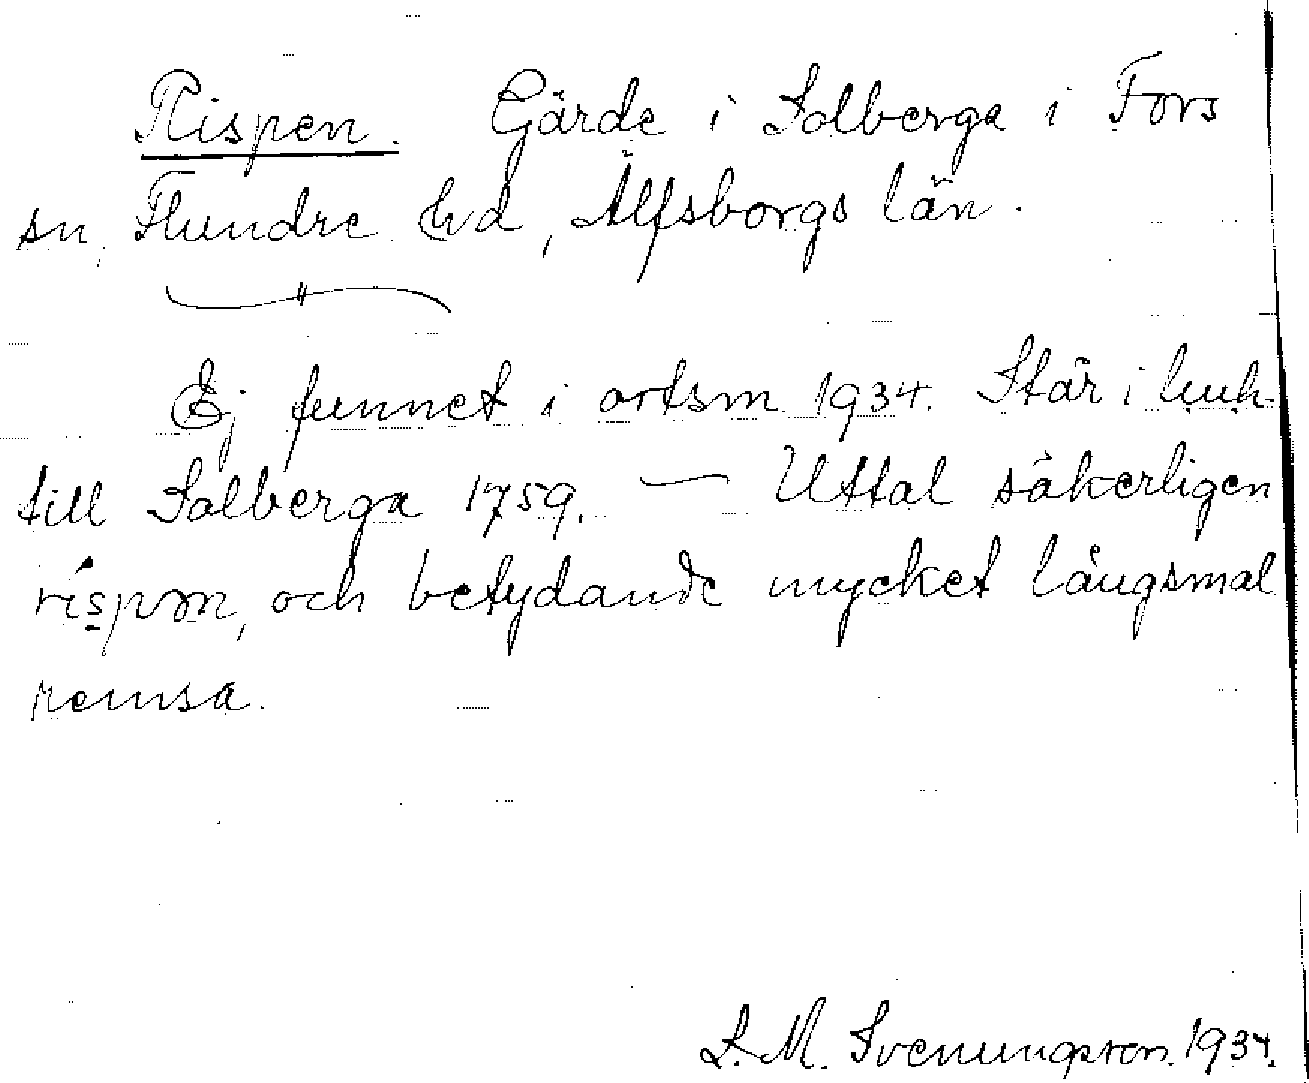 Rispen. Gärde i Solberga i Fors
sn, Flundre hd, Älfsborgs län.
Ej funnet i ortsn 1934. Står i
till Solberga 1759. — Uttal säkerligen
och betydande mycket långsmal
remsa.
S. M. Svenungsson. 1934.